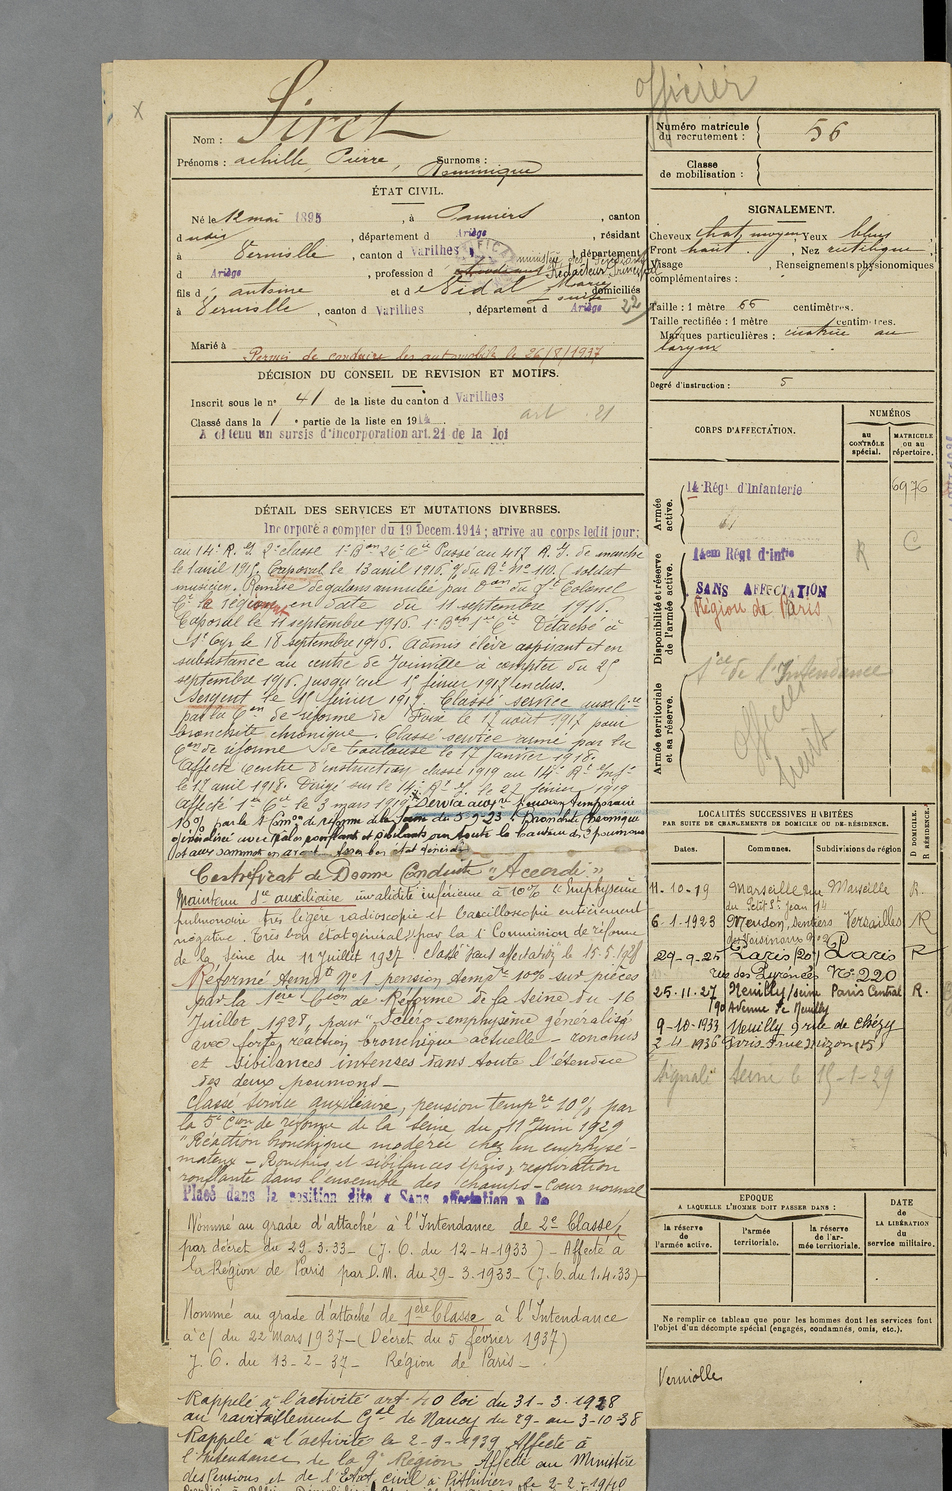 officier
x
Nom : Siret
Prénoms : achille, Pierre, Surnoms :
Dominique
ÉTAT CIVIL.
Né le 12 mai 1895, à Pamiers, canton
dudit, département d Ariège, résidant
à Verniolle, canton d Varilhes, département
d Ariège, profession d étudiant Rédacteur principal
ministère des Pensions
fils d antoine et de Vidal Marie domiciliés
à Verniolle, canton d Varilhes, département d Ariège 22
Marié à
Permis de conduire les automobiles le 26/8/1937
DÉCISION DU CONSEIL DE REVISION ET MOTIFS.
Inscrit sous le n° 41 de la liste du canton d Varilhes
Classé dans la 1e partie de la liste en 1914 art. 21
A obtenu un sursis d'incorporation art. 21 de la loi
DÉTAIL DES SERVICES ET MUTATIONS DIVERSES.
Incorporé a compter du 19 Decem. 1914 ; arrive au corps ledit jour ;
au 14e R. I. 2e classe 1e Bon 26e Cie Passé au 417 R. I. de marche
le 1 avril 1915. Caporal le 13 avril 1916. (soldat
musicien. Remise de galons annulée par Lt Colonel
Ct le régiment en date du 11 septembre 1916.
Caporal le 11 septembre 1916. 1e Bon 1e Cie Détaché à
St Cyr le 18 septembre 1916. Admis élève aspirant et en
subsistance au centre de Joinville à compter du 25
septembre 1916. jusqu'au 1e février 1917 inclus.
Sergent le 1e février 1917. Classé service auxiliaire
par la Con de réforme de Foix le 17 août 1917 pour
bronchite chronique. Classé service armé par la
Con de réforme de Toulouse le 17 janvier 1918.
Affecté Centre d'instruction classe 1919 au 14e Rt Infie
le 17 avril 1918. Dirigé sur le 14e Rt I. le 27 février 1919
Affecté 1e Cie le 3 mars 1919. Service auxre pension temporaire
10% par la Comon de réforme de la Seine du 5-9-23 : Bronchite chronique
généralisée avec râles ronflants et sibilants sur toute la hauteur des 2 poumons
et aux sommets en avant. Assez bon état général
Certificat de Bonne Conduite "Accordé"
Maintenu Sce auxiliaire invalidité inférieure à 10% "Emphysème
pulmonaire très légère radioscopie et bacilloscopie entièrement
négative. Très bon état général" par la 1e Commission de réforme
de la Seine du 11 Juillet 1927. classé "sans affectation" le 15.5.1928
Réformé tempre N° 1 pension tempre 10% sur pièces
par la 1ère Con de Réforme de la Seine du 16
Juillet 1928, pour "Scléro-emphysème généralisé
avec forte réaction bronchique actuelle - ronchus
et sibilances intenses dans toute l'étendue
des deux poumons -
Classé service auxiliaire, pension tempre 10% par
la 5e Con de réforme de la Seine du 11 Juin 1929
"Réaction bronchique modérée chez un emphysé-
mateux - Ronchus et sibilances épais, respiration
ronflante dans l'ensemble des champs - Cœur normal
Placé dans la position dite « Sans affectation » le
Nommé au grade d'attaché à l'Intendance de 2e Classe,
par décret du 29.3.33 - (J. O. du 12-4-1933) - Affecté à
la Région de Paris par D.M. du 29-3-1933 - (J. O. du 1.4.33)
Nommé au grade d'attaché de 1ère Classe à l'Intendance
à c/ du 22 mars 1937 - (Décret du 5 février 1937)
J. O. du 13-2-37 - Région de Paris -
Rappelé à l'activité art. 40 loi du 31-3-1928
au ravitaillement Gal de Nancy du 29- au 3-10-38
Rappelé à l'activité le 2-9-1939 Affecté à
l'Intendance de la 9e Région. Affecté au Ministère
des Pensions et de l'Etat civil à Pithiviers le 2-2-1940
Numéro matricule du recrutement : 56
Classe de mobilisation :
SIGNALEMENT.
Cheveux chat. moyen, Yeux bleus
Front haut, Nez rectiligne
Visage, Renseignements physionomiques
complémentaires :
Taille : 1 mètre 66 centimètres.
Taille rectifiée : 1 mètre centimètres.
Marques particulières : cicatrice au
larynx
Degré d'instruction : 5
CORPS D'AFFECTATION.
NUMÉROS
AU CONTRÔLE spécial.
MATRICULE ou au répertoire.
Armée active.
14 Régt d'Infanterie
6976
Disponibilité et réserve de l'armée active.
14em Régt d'Infie
R
C
SANS AFFECTATION
Région de Paris,
Armée territoriale et sa réserve.
Sce de l'Intendance
Officier
LOCALITÉS SUCCESSIVES HABITÉES
PAR SUITE DE CHANGEMENTS DE DOMICILE OU DE RÉSIDENCE.
Dates.
Communes.
Subdivisions de région
D DOMICILE.
R RÉSIDENCE.
11.10.19 Marseille rue Marseille R.
du Petit St Jean 14
6.1.1923 Meudon, sentiers Versailles R
29-9-25 Paris (20e) Paris R
rue des Pyrénées N° 220
25.11.27 Neuilly/seine Paris Central R.
190 Avenue de Neuilly
9-10-1933 Neuilly 9 rue de Chézy
2-4-1936
signalé Seine le 15-1-29
EPOQUE
A LAQUELLE L'HOMME DOIT PASSER DANS :
la réserve de l'armée active.
l'armée territoriale.
la réserve de l'armée territoriale.
DATE
de LA LIBÉRATION du service militaire.
Ne remplir ce tableau que pour les hommes dont les services font
l'objet d'un décompte spécial (engagés, condamnés, omis, etc.).
Verniolle